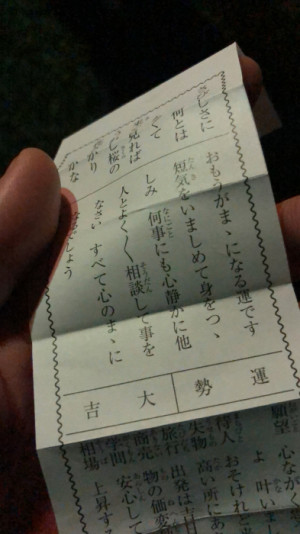 さしさに
何とは
なくて
見れば
桜の
かり
かな
おもうがまゝになる運です
短気をいましめて身をつゝ
しみ何事にも心静かに他
人とよく〱相談して事を
なさい すべて心のまゝに
なるでしょう
運勢
大吉
願望
心ながく
よ 叶いまし
待人
おそけれど
失物
高い所にあ
旅行
出発は吉日
商売
物の価変
学問
安心して
相場
上昇する